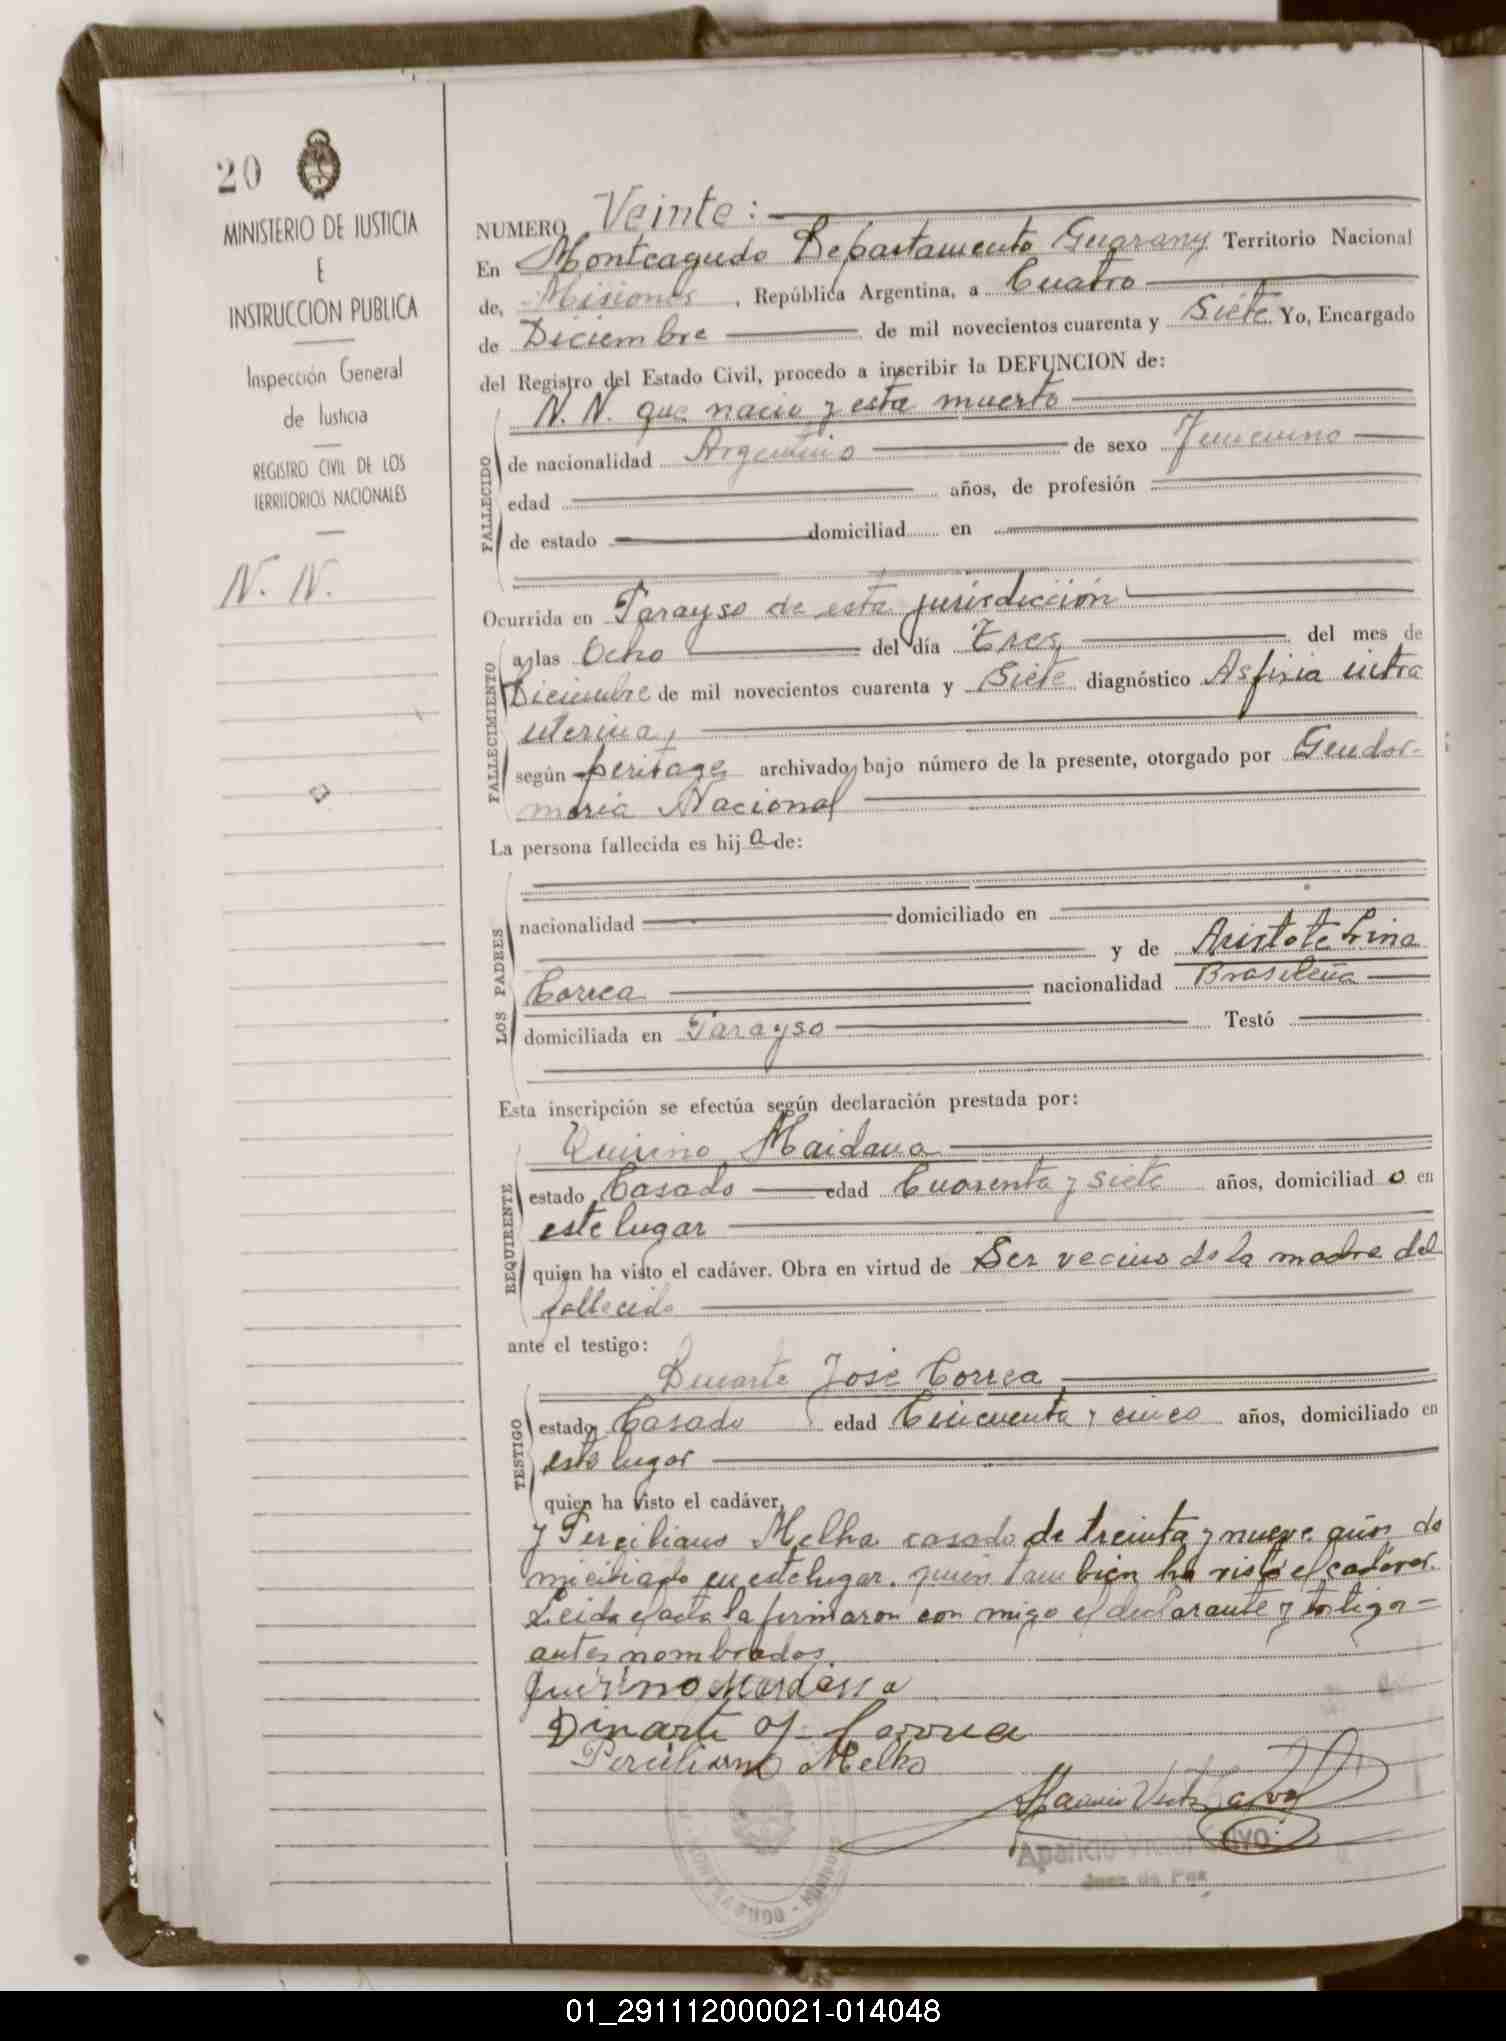 20
MINISTERIO DE JUSTICIA
E
INSTRUCCION PUBLICA
Inspección General
de Justicia
REGISTRO CIVIL DE LOS
TERRITORIOS NACIONALES
N. N.
NUMERO Veinte:
En Monteagudo Departamento Guarany Territorio Nacional
de, Misiones, República Argentina, a Cuatro
de Diciembre de mil novecientos cuarenta y Siete Yo, Encargado
del Registro del Estado Civil, procedo a inscribir la DEFUNCION de:
N. N. que nacio y esta muerto
FALLECIDO
de nacionalidad Argentino de sexo Femenino
edad años, de profesión
de estado domiciliad en
Ocurrida en Parayso de esta jurisdicción
FALLECIMIENTO
a las Ocho del día Tres del mes de
Diciembre de mil novecientos cuarenta y Siete diagnóstico Asfixia intra
uterina,
según peritage archivado bajo número de la presente, otorgado por Gendar-
meria Nacional
La persona fallecida es hij a de:
LOS PADRES
nacionalidad domiciliado en
y de Aristotelina
Correa nacionalidad Brasileña
domiciliada en Parayso Testó
Esta inscripción se efectúa según declaración prestada por:
REQUIRENTE
Quirino Maidana
estado Casado edad Cuarenta y siete años, domiciliad o en
este lugar
quien ha visto el cadáver. Obra en virtud de Ser vecino de la madre del
fallecido
ante el testigo:
TESTIGO
Duarte José Correa
estado Casado edad Cincuenta y cinco años, domiciliado en
este lugar
quien ha visto el cadáver,
y Perciliano Melha casado de treinta y nueve años do
miciliado en este lugar. quien tambien ha visto el cadaver.
Leida el acta la firmaron con migo el declarante y testigos
antes nombrados.
Quirino
Dinarte J. Correa
Perciliano Melho
Aparicio Victor Calvo
Juez de Paz
01_291112000021-014048